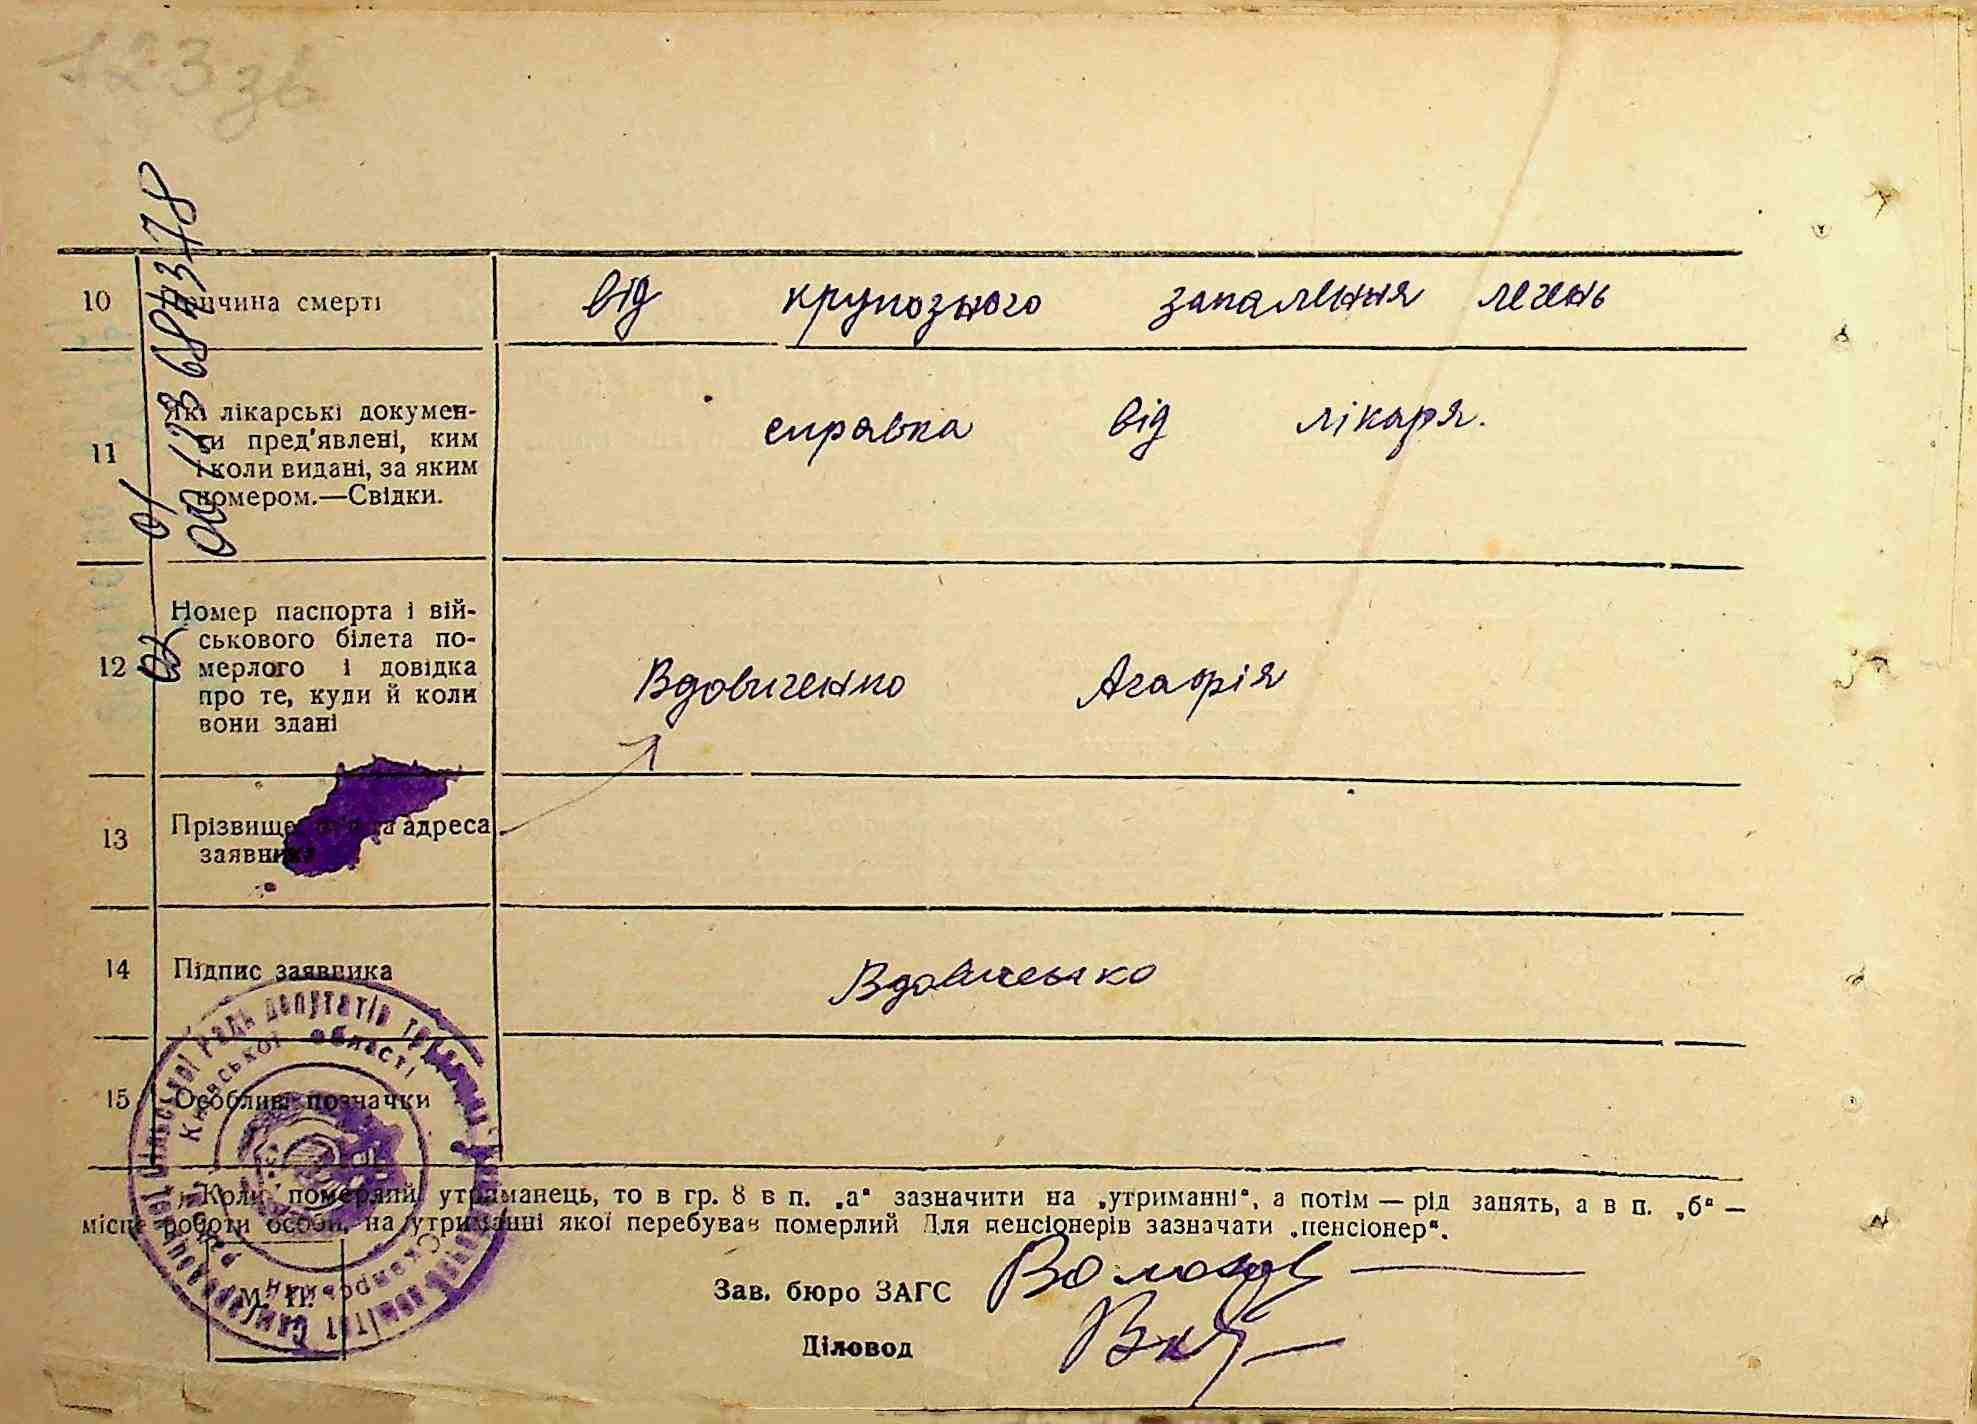 123 зв
00123684378
01
02
10 Причина смерті від крупозного запалення легень
11 Які лікарські докумен-
ти пред'явлені, ким
і коли видані, за яким
номером.—Свідки.
справка від лікаря.
12 Номер паспорта і вій-
ськового білета по-
мерлого і довідка
про те, куди й коли
вони здані
Вдовиченко Агафія
13 Прізвище адреса
заявника
14 Підпис заявника Вдовиченко
15 Особливі позначки
Коли померлий утриманець, то в гр. 8 в п. „а“ зазначити на „утриманні“, а потім — рід занять, а в п. „б“ —
місце роботи особи, на утриманні якої перебував померлий Для пенсіонерів зазначати „пенсіонер“.
Зав. бюро ЗАГС
Діловод
М. П.
сільської Ради депутатів трудящих
Київської області
комітет